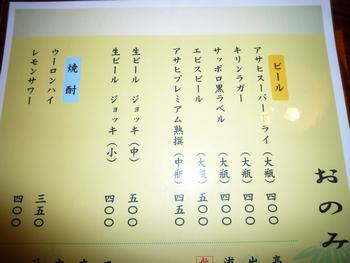 おのみ
ビール
アサヒスーパードライ（大瓶）四〇〇
キリンラガー（大瓶）四〇〇
サッポロ黒ラベル（大瓶）四〇〇
エビスビール（大瓶）五〇〇
アサヒプレミアム熟撰（中瓶）四五〇
生ビール ジョッキ（中）五〇〇
生ビール ジョッキ（小）四〇〇
焼酎
ウーロンハイ 三五〇
レモンサワー 四〇〇